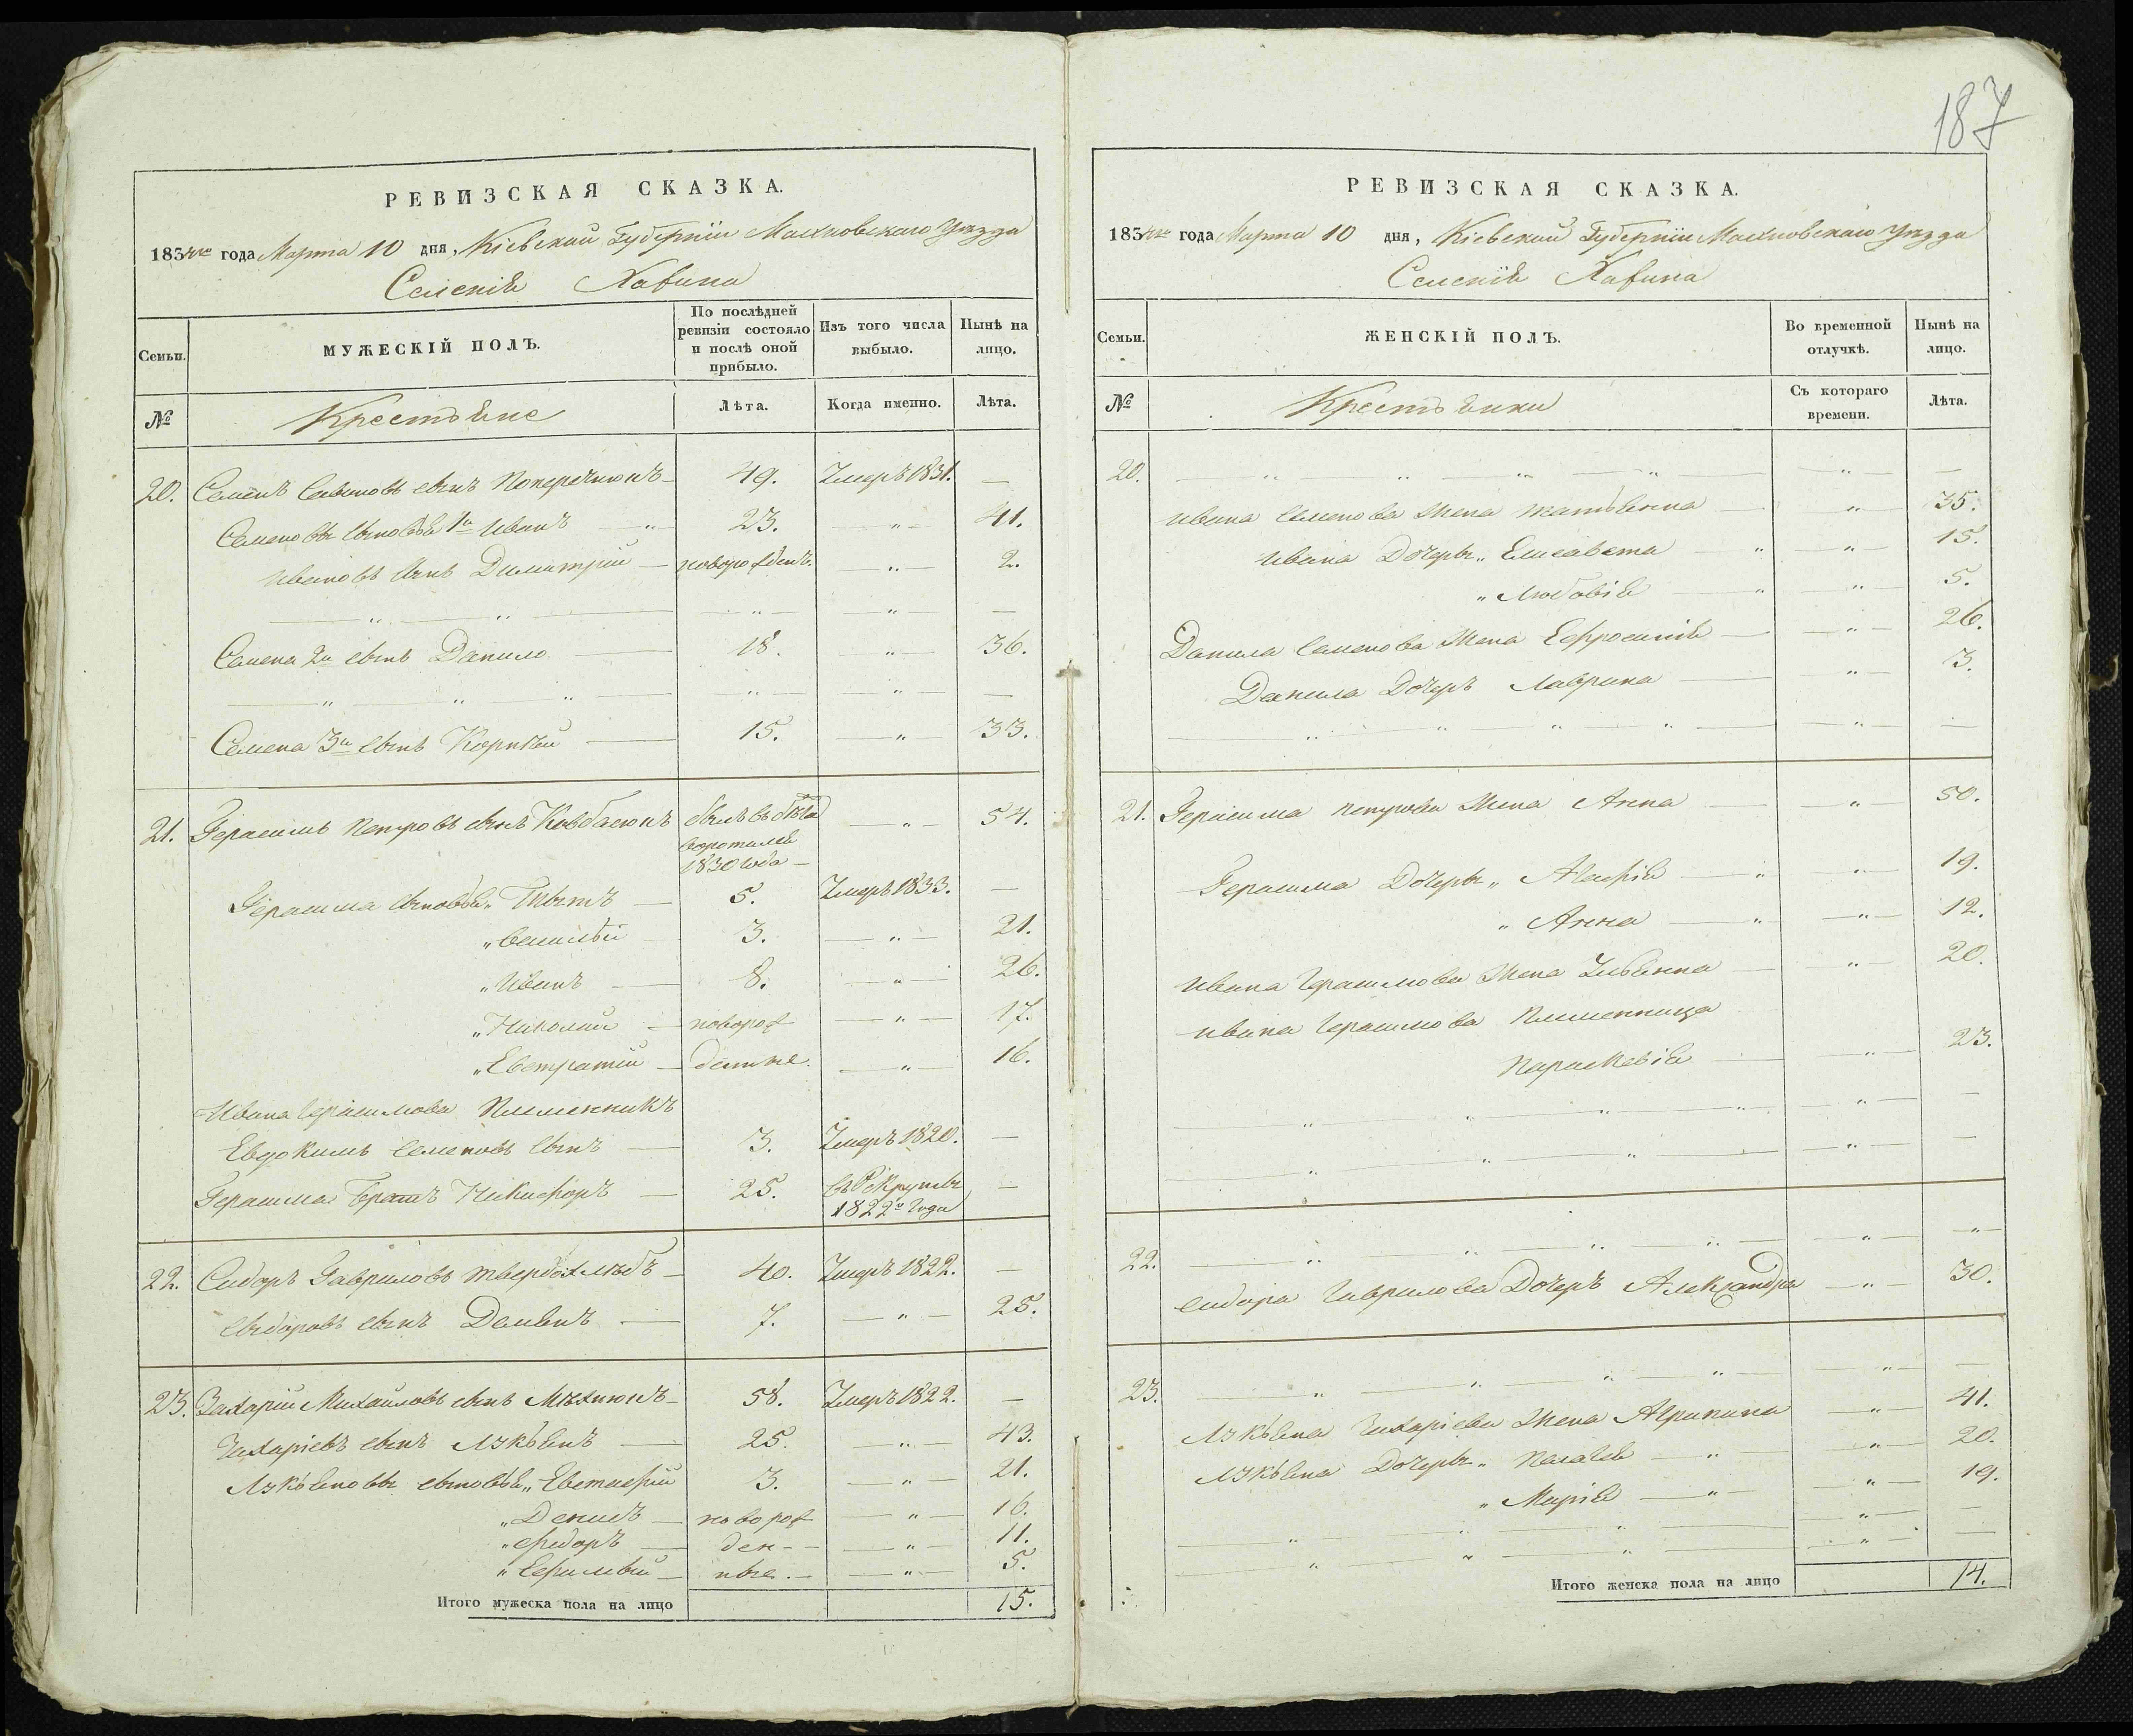 187
РЕВИЗСКАЯ СКАЗКА.
1834го года Марта 10 дня, Кіевской Губерніи Махновскаго Уѣзда
Селенія Хавина
Семьи.
МУЖЕСКІЙ ПОЛЪ.
По послѣдней ревизіи состояло и послѣ оной прибыло.
Изъ того числа выбыло.
Нынѣ на лицо.
№
Крестьяне
Лѣта.
Когда именно.
Лѣта.
20. Семенъ Савиновъ сынъ Поперечнюкъ 49. Умеръ 1831. —
Семеновы сыновья 1й Иванъ 23. — " — 41.
Ивановъ сынъ Димитрій — новорожденъ. — " — 2.
Семена 2й сынъ Данило 18. — " — 36.
Семена 3й сынъ Корнѣй 15. — " — 33.
21. Герасимъ Петровъ сынъ Ковбасюкъ былъ въ бѣгах — " — 54.
воротился
1830 года —
Герасима сыновья „ Титъ — 5. Умеръ 1833. —
„ Василій 3. — " — 21.
„ Иванъ 8. — " — 26.
„ Николай — новорож — " — 17.
„ Евстратій — денные. — " — 16.
Ивана Герасимова Племенникъ
Евдокимъ Семеновъ сынъ 3. Умеръ 1820. —
Герасима Братъ Никифоръ 25. въ Рекруты —
1822го Года
22. Сидоръ Гавриловъ Твердохлѣбъ — 40. Умеръ 1822. —
Сидоровъ сынъ Демьянъ 7. — " — 25.
23. Захарій Михайловъ сынъ Мѣхнюкъ — 58. Умеръ 1822. —
Захаріевъ сынъ Лукьянъ 25. — " — 43.
Лукьяновы сыновья „ Евстафій 3. — " — 21.
„ Денисъ — новорож — " — 16.
„ Федоръ — ден- - — " — 11.
„ Ефимій — ные. — — " — 5.
Итого мужеска пола на лицо 15.
РЕВИЗСКАЯ СКАЗКА.
1834го года Марта 10 дня, Кіевской Губерніи Махновскаго Уѣзда
Селенія Хавина
Семьи.
ЖЕНСКІЙ ПОЛЪ.
Во временной отлучкѣ.
Нынѣ на лицо.
№
Крестьянки
Съ котораго времени.
Лѣта.
20.
Ивана Семенова Жена Татьянна — " — 35.
Ивана Дочеры „ Елисавета — " — 15.
„ Любовія — " — 5.
Данила Семенова Жена Ефросинія — " — 26.
Данила Дочеръ Лаврина — " — 3.
21. Герасима Петрова Жена Анна — " — 50.
Герасима Дочеры „ Агафія — " — 19.
„ Анна — " — 12.
Ивана Герасимова Жена Ульянна — " — 20.
Ивана Герасимова Племенница
Параскевія — " — 23.
22.
Сидора Гаврилова Дочеръ Александра — " — 30.
23.
Лукьяна Захаріева Жена Агрипина — " — 41.
Лукьяна Дочеры „ Палагея — " — 20.
„ Марія — " — 19.
Итого женска пола на лицо 14.